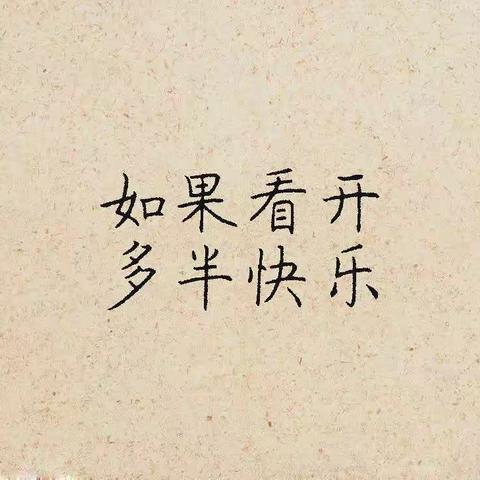 如果看开
多半快乐